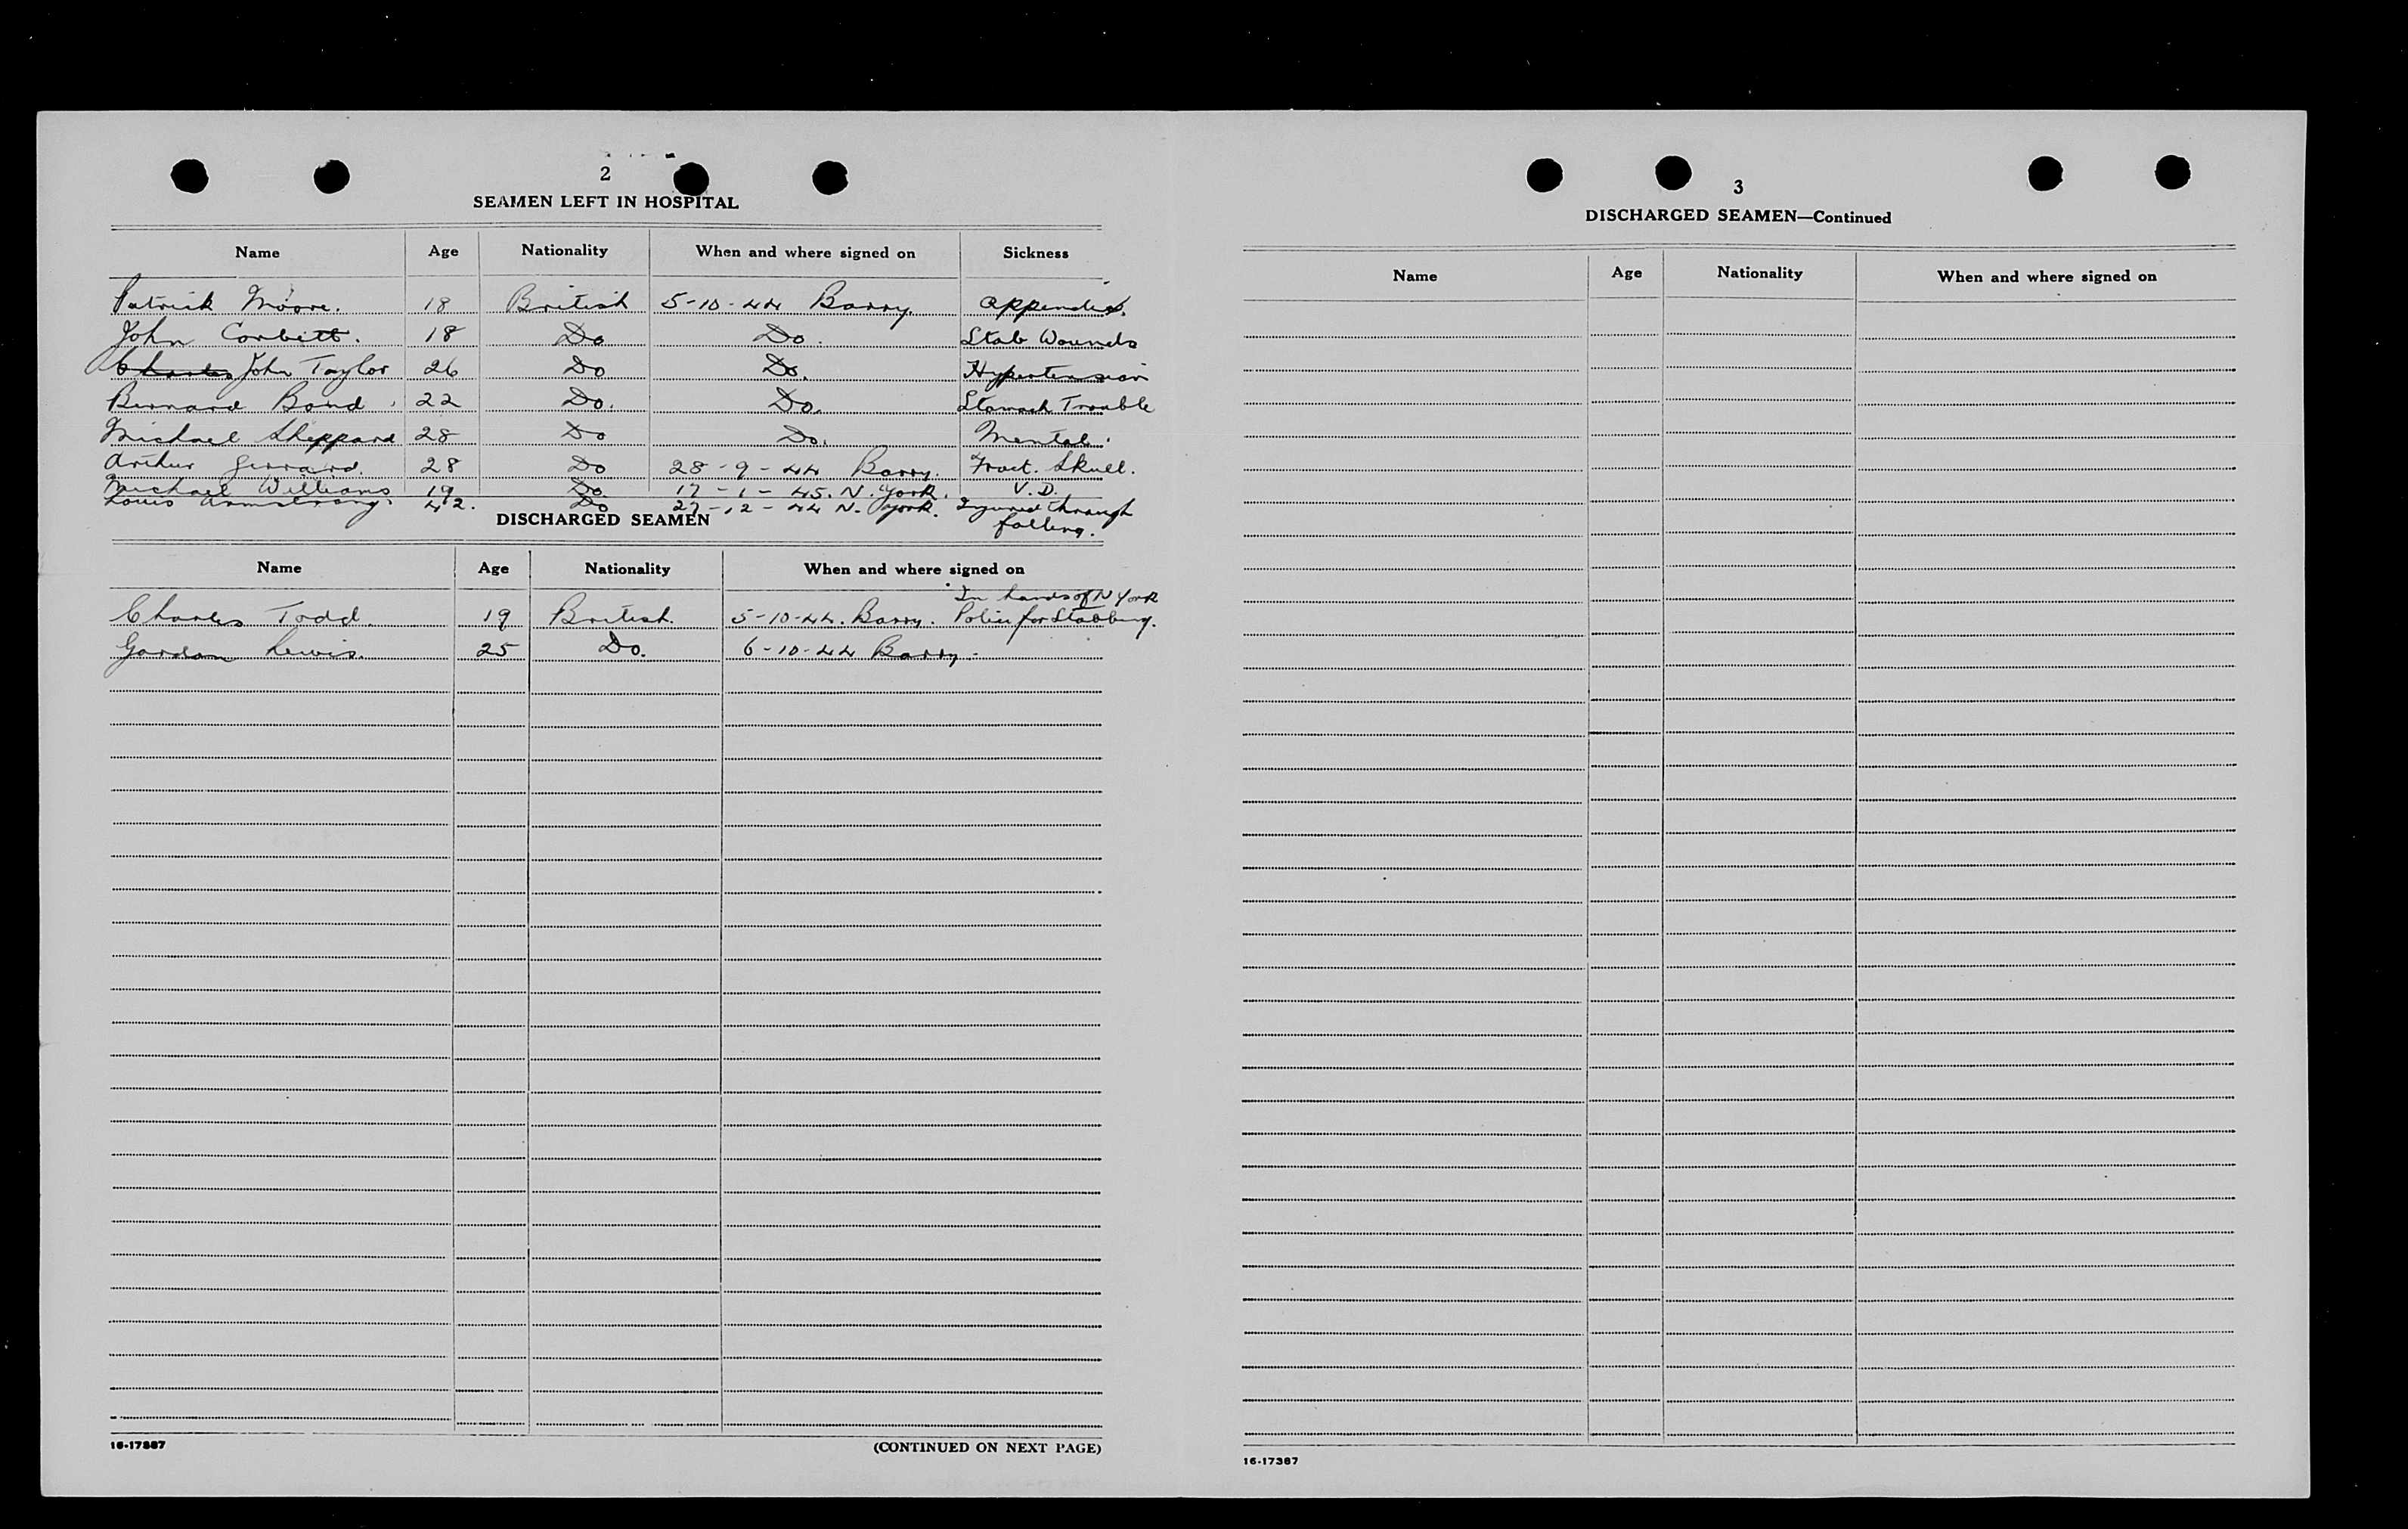 2
SEAMEN LEFT IN HOSPITAL
Name Age Nationality When and where signed on Sickness
Patrick Moore. 18 British 5-10-44 Barry. Appendix.
John Corbett. 18 Do Do. Stab Wounds
Charles John Taylor 26 Do Do. Hypertension
Bernard Bond. 22 Do. Do. Stomach Trouble
Michael Sheppard 28 Do Do. Mental.
Arthur Gerrard. 28 Do 28-9-44 Barry. Fract. Skull.
Michael Williams 19 Do. 17-1-45. N. York. V.D.
Louis Armstrong. 42. Do 27-12-44 N. York. Injured through
falling.
DISCHARGED SEAMEN
Name Age Nationality When and where signed on
In hands of N York
Charles Todd. 19 British. 5-10-44. Barry. Police for Stabbing.
Gordon Lewis. 25 Do. 6-10-44 Barry.
16-17387
(CONTINUED ON NEXT PAGE)
3
DISCHARGED SEAMEN—Continued
Name Age Nationality When and where signed on
16-17387